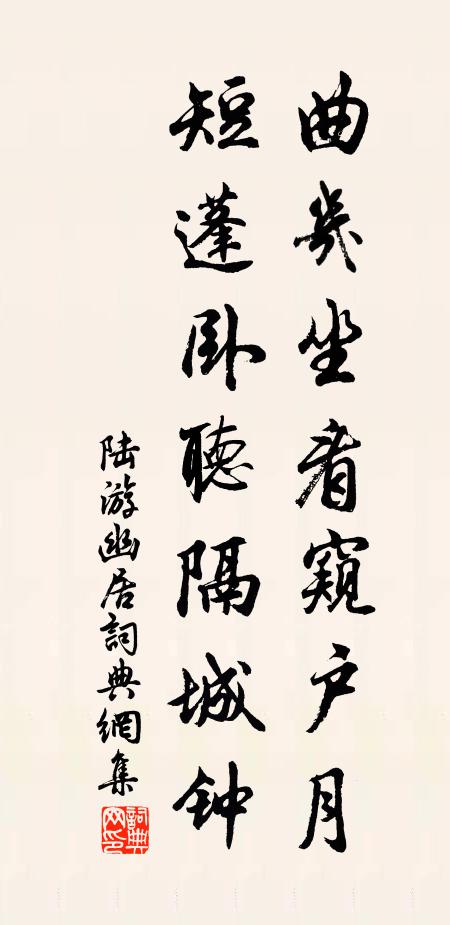 曲幾坐看窺户月
短蓬卧聽隔城钟
陆游幽居詞典網集
詞典网印